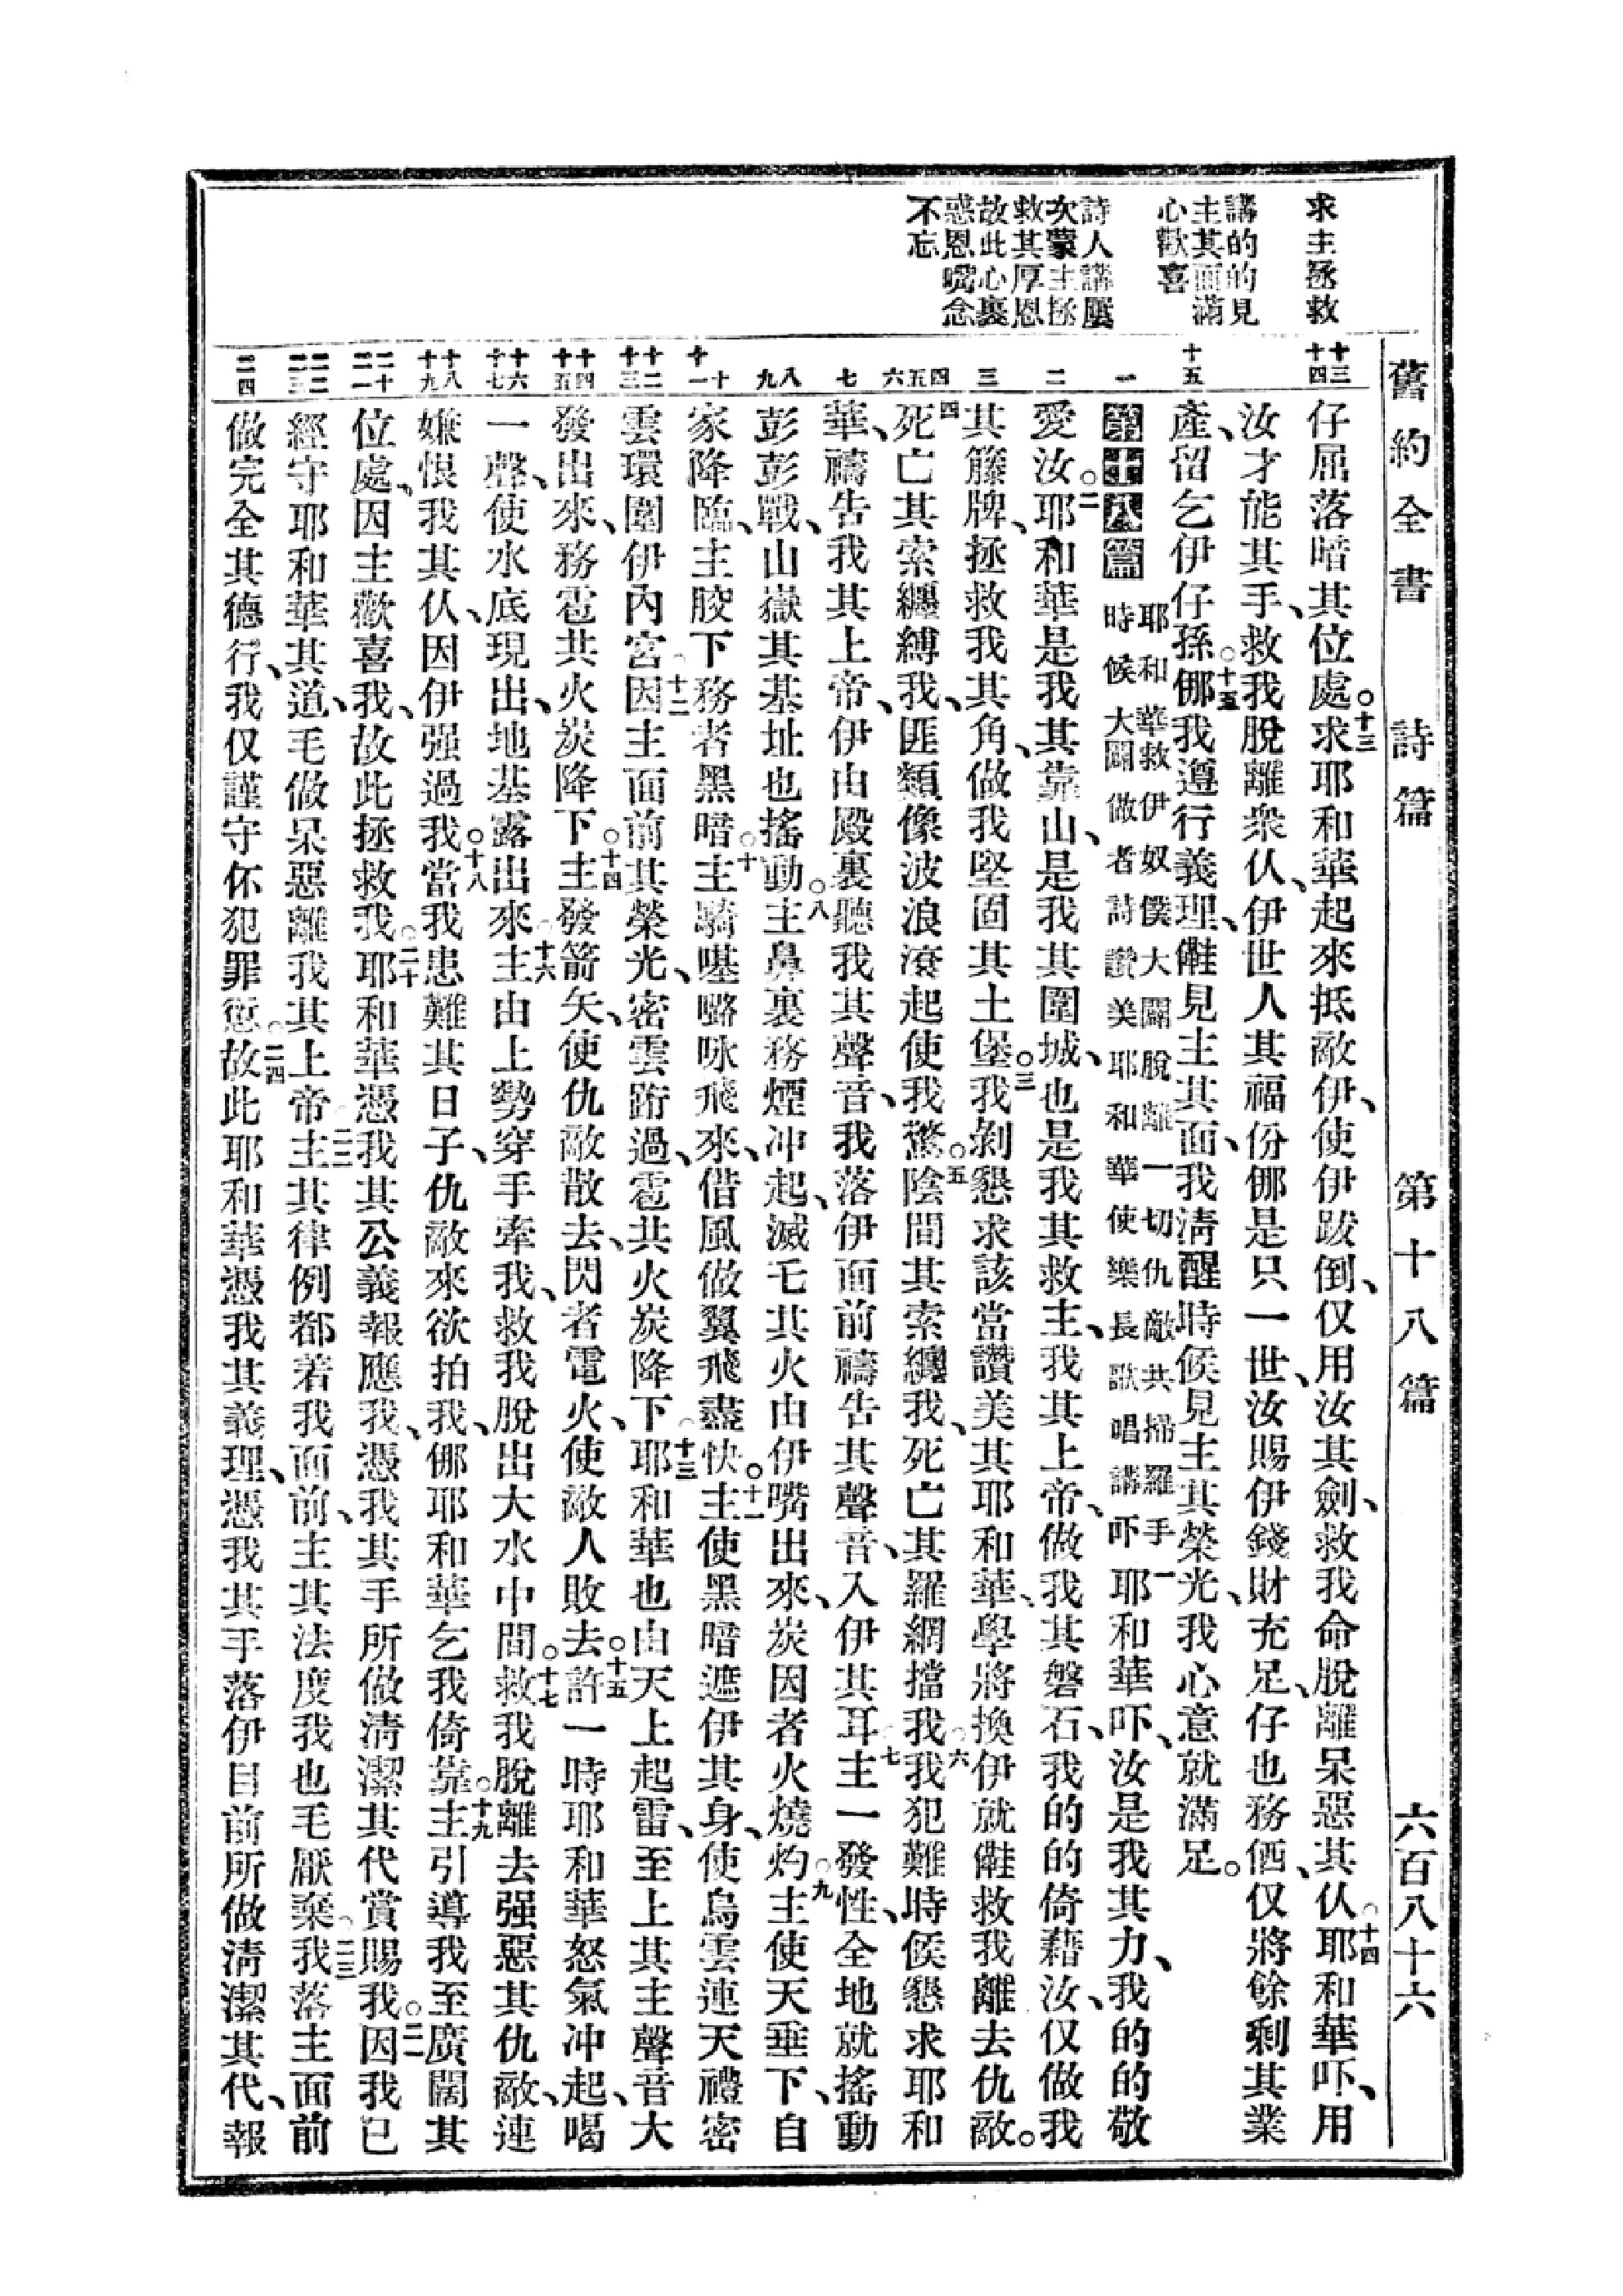 舊約全書 詩篇 第十八篇 六百八十六
求主拯救
講的的見
主其面滿
心歡喜
詩人講屢
次蒙主拯
救其厚恩
故此心裏
惑恩嘴念
不忘
十三 十四 十五 一 二 三 四 五 六 七 八 九 十 十一 十二 十三 十四 十五 十六 十七 十八 十九 二十 二一 二二 二三 二四
仔屈落暗其位處○十三求耶和華起來抵敵伊、使伊跋倒、仅用汝其劍、救我命脫離呆惡其仈○十四耶和華吓、用
汝才能其手、救我脫離衆仈、伊世人其福份㑚是只一世、汝賜伊錢財充足、仔也務㐼、仅將餘剩其業
產、留乞伊仔孫○十五㑚我遵行義理、㑤見主其面、我淸醒時候見主其榮光、我心意就滿足。
第十八篇 耶和華救伊奴僕大闢脫離一切仇敵共掃羅手
時候大闢做者詩讚美耶和華使樂長歌唱講吓 一耶和華吓、汝是我其力、我的的敬
愛汝○二耶和華是我其靠山、是我其圍城、也是我其救主、我其上帝、做我其磐石、我的的倚藉汝、仅做我
其籐牌、拯救我其角、做我堅固其土堡○三我剝懇求該當讚美其耶和華、學將換伊就㑤救我離去仇敵。
四死亡其索纏縛我、匪類像波浪滾起使我驚○五陰間其索纏我、死亡其羅網擋我○六我犯難時候懇求耶和
華、禱告我其上帝、伊由殿裏聽我其聲音、我落伊面前禱告其聲音、入伊其耳○七主一發性、全地就搖動
彭彭戰、山嶽其基址也搖動○八主鼻裏務煙冲起、滅乇其火由伊嘴出來、炭因者火燒灼○九主使天垂下、自
家降臨、主骹下務者黑暗○十主騎𠻳嚕咏飛來、借風做翼飛盡快○十一主使黑暗遮伊其身、使烏雲連天禮密
雲環圍伊內宮○十二因主面前其榮光、密雲跨過、雹共火炭降下○十三耶和華也由天上起雷、至上其主聲音大
發出來、務雹共火炭降下○十四主發箭矢、使仇敵散去、閃者電火、使敵人敗去○十五許一時耶和華怒氣冲起、喝
一聲、使水底現出、地基露出來○十六主由上勢穿手牽我、救我脫出大水中間○十七救我脫離去强惡其仇敵、連
嫌恨我其仈、因伊强過我○十八當我患難其日子、仇敵來欲拍我、㑚耶和華乞我倚靠○十九主引導我至廣闊其
位處、因主歡喜我、故此拯救我○二十耶和華憑我其公義報應我、憑我其手所做淸潔其代賞賜我○二一因我已
經守耶和華其道、毛做呆惡離我其上帝○二二主其律例都着我面前、主其法度我也毛厭棄○二三我落主面前
做完全其德行、我仅謹守伓犯罪愆○二四故此耶和華憑我其義理、憑我其手落伊目前所做淸潔其代、報